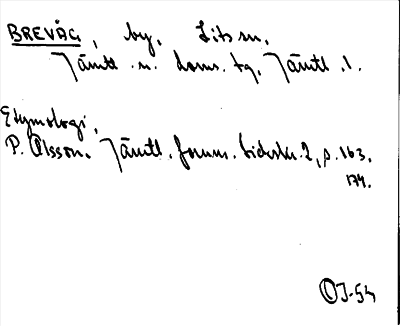 BREVÅG, by, Lits sn,
Jämtl. n. doms. tg, Jämtl. l.
Etymologi,
P. Olsson. Jämtl. fornm. tidskr. 2, s. 163.
174.
OJ-54